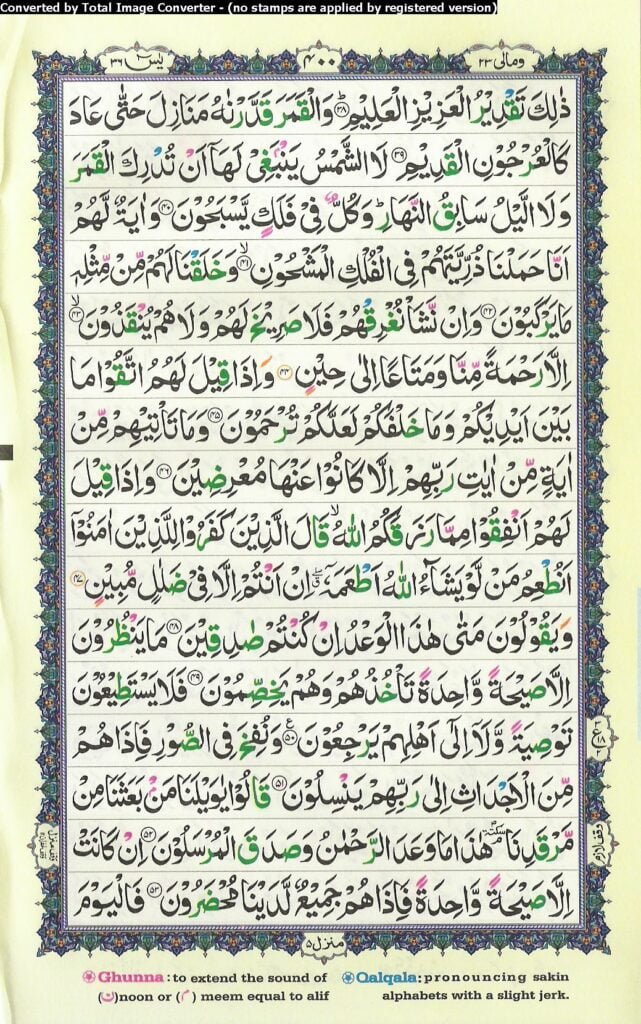 Converted by Total Image Converter - (no stamps are applied by registered version)
ومالی ۲۳
۴۰۰
یٰسٓ ۳۶
ذٰلِكَ تَقْدِيْرُ الْعَزِيْزِ الْعَلِيْمِؕ ۝۳۸ وَالْقَمَرَ قَدَّرْنٰهُ مَنَازِلَ حَتّٰى عَادَ
كَالْعُرْجُوْنِ الْقَدِيْمِ ۝۳۹ لَا الشَّمْسُ يَنْۢبَغِىْ لَهَاۤ اَنْ تُدْرِكَ الْقَمَرَ
وَلَا الَّيْلُ سَابِقُ النَّهَارِؕ وَكُلٌّ فِىْ فَلَكٍ يَّسْبَحُوْنَ ۝۴۰ وَاٰيَةٌ لَّهُمْ
اَنَّا حَمَلْنَا ذُرِّيَّتَهُمْ فِى الْفُلْكِ الْمَشْحُوْنِۙ ۝۴۱ وَخَلَقْنَا لَهُمْ مِّنْ مِّثْلِهٖ
مَا يَرْكَبُوْنَ ۝۴۲ وَاِنْ نَّشَاْ نُغْرِقْهُمْ فَلَا صَرِيْخَ لَهُمْ وَلَا هُمْ يُنْقَذُوْنَۙ ۝۴۳
اِلَّا رَحْمَةً مِّنَّا وَمَتَاعًا اِلٰى حِيْنٍ ۝۴۴ وَاِذَا قِيْلَ لَهُمُ اتَّقُوْا مَا
بَيْنَ اَيْدِيْكُمْ وَمَا خَلْفَكُمْ لَعَلَّكُمْ تُرْحَمُوْنَ ۝۴۵ وَمَا تَاْتِيْهِمْ مِّنْ
اٰيَةٍ مِّنْ اٰيٰتِ رَبِّهِمْ اِلَّا كَانُوْا عَنْهَا مُعْرِضِيْنَ ۝۴۶ وَاِذَا قِيْلَ
لَهُمْ اَنْفِقُوْا مِمَّا رَزَقَكُمُ اللّٰهُۙ قَالَ الَّذِيْنَ كَفَرُوْا لِلَّذِيْنَ اٰمَنُوْۤا
اَنُطْعِمُ مَنْ لَّوْ يَشَآءُ اللّٰهُ اَطْعَمَهٗۤ ۖ اِنْ اَنْتُمْ اِلَّا فِىْ ضَلٰلٍ مُّبِيْنٍ ۝۴۷
وَيَقُوْلُوْنَ مَتٰى هٰذَا الْوَعْدُ اِنْ كُنْتُمْ صٰدِقِيْنَ ۝۴۸ مَا يَنْظُرُوْنَ
اِلَّا صَيْحَةً وَّاحِدَةً تَاْخُذُهُمْ وَهُمْ يَخِصِّمُوْنَ ۝۴۹ فَلَا يَسْتَطِيْعُوْنَ
تَوْصِيَةً وَّلَاۤ اِلٰٓى اَهْلِهِمْ يَرْجِعُوْنَ ۝۵۰ وَنُفِخَ فِى الصُّوْرِ فَاِذَا هُمْ
مِّنَ الْاَجْدَاثِ اِلٰى رَبِّهِمْ يَنْسِلُوْنَ ۝۵۱ قَالُوْا يٰوَيْلَنَا مَنْۢ بَعَثَنَا مِنْ
مَّرْقَدِنَا ؄ هٰذَا مَا وَعَدَ الرَّحْمٰنُ وَصَدَقَ الْمُرْسَلُوْنَ ۝۵۲ اِنْ كَانَتْ
اِلَّا صَيْحَةً وَّاحِدَةً فَاِذَا هُمْ جَمِيْعٌ لَّدَيْنَا مُحْضَرُوْنَ ۝۵۳ فَالْيَوْمَ
منزل ۵
Ghunna : to extend the sound of
(ن) noon or (م) meem equal to alif
Qalqala: pronouncing sakin
alphabets with a slight jerk.